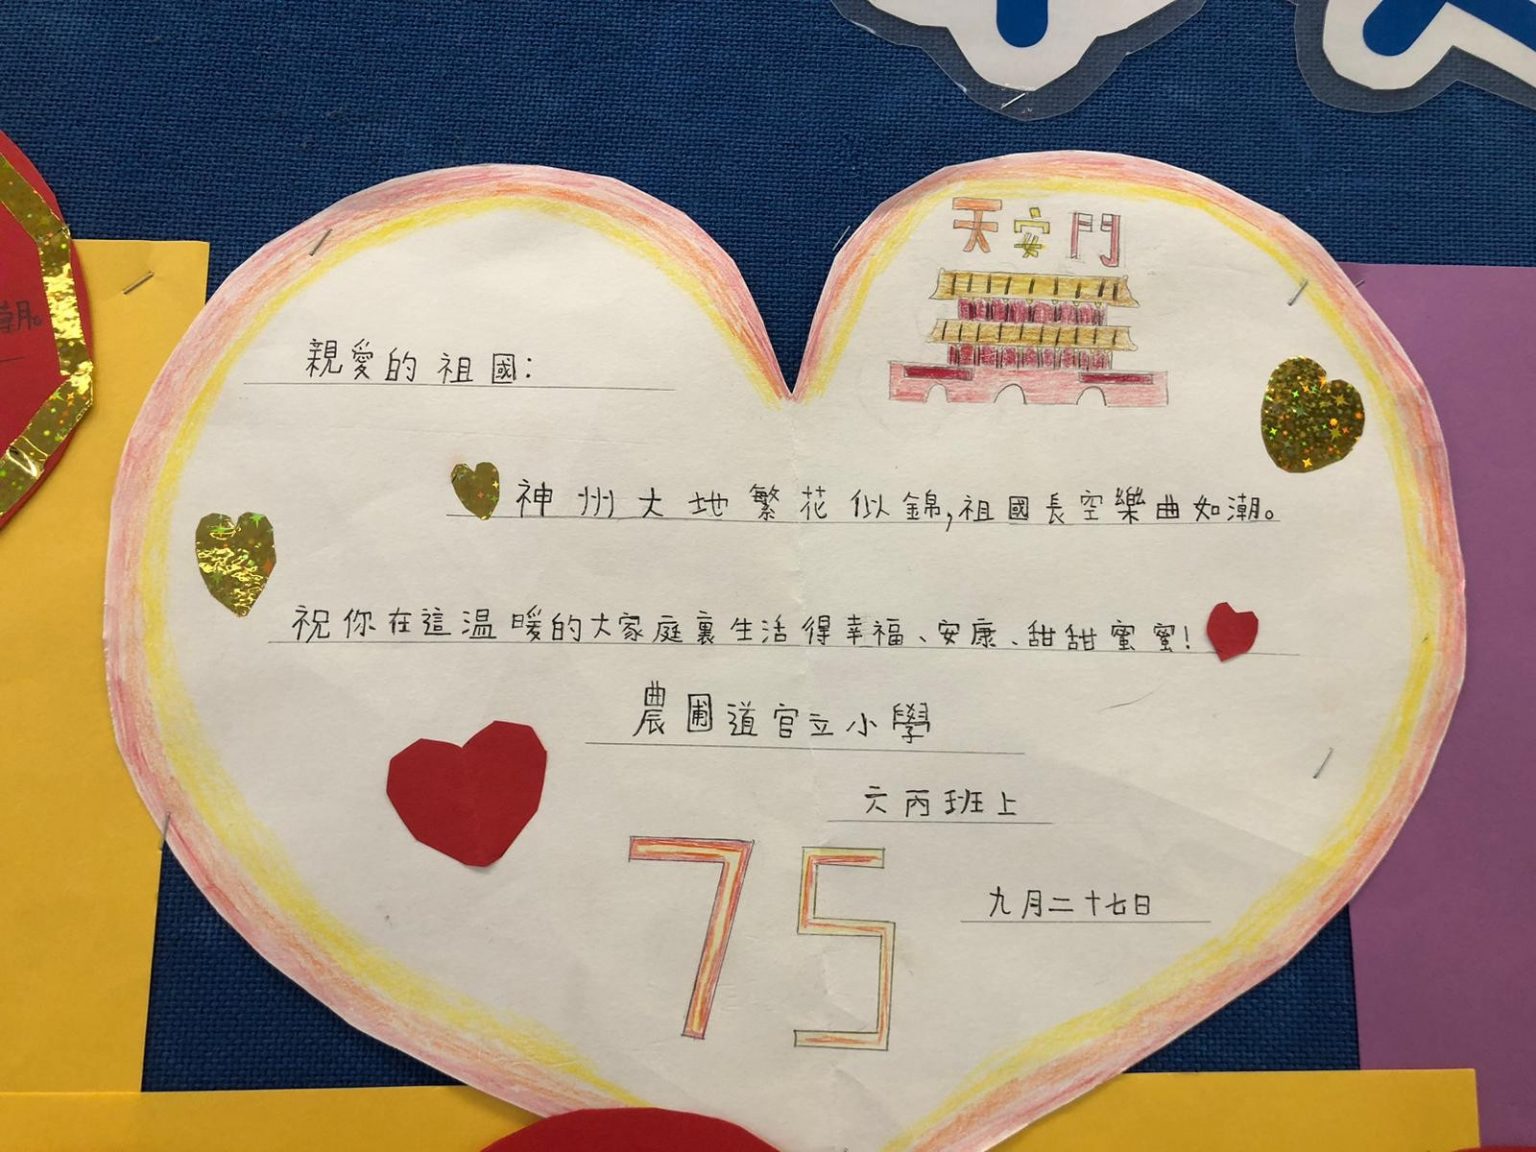 天安門
親愛的祖國：
神州大地繁花似錦,祖國長空樂曲如潮。
祝你在這溫暖的大家庭裏生活得幸福、安康、甜甜蜜蜜!
農圃道官立小學
六丙班上
75
九月二十七日
潮。